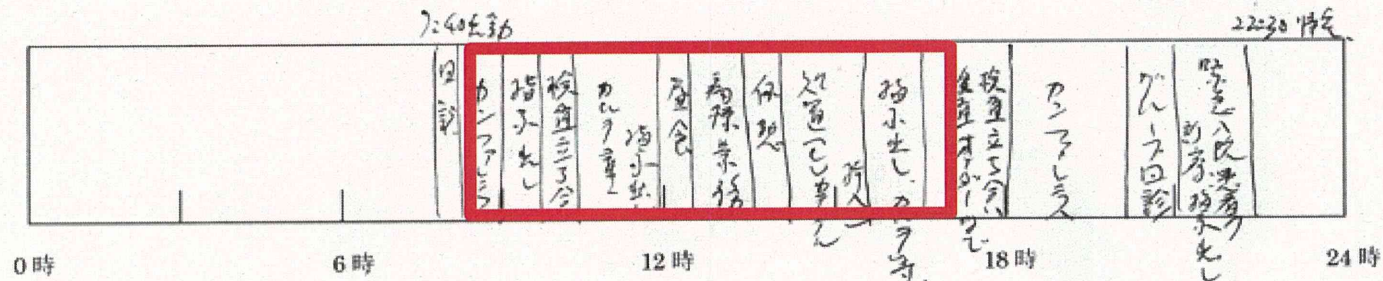 7:40出勤
22:30帰宅
回診
カンファレンス
指示出し
検査立ち会い
カルテ書
指示出し
昼食
病棟業務
休憩
処置
挿入
指示出し、カルテ書
検査立ち会い
検査オーダーetc
カンファレンス
グループ回診
緊急入院患者の
診察、指示出し
0時
6時
12時
18時
24時